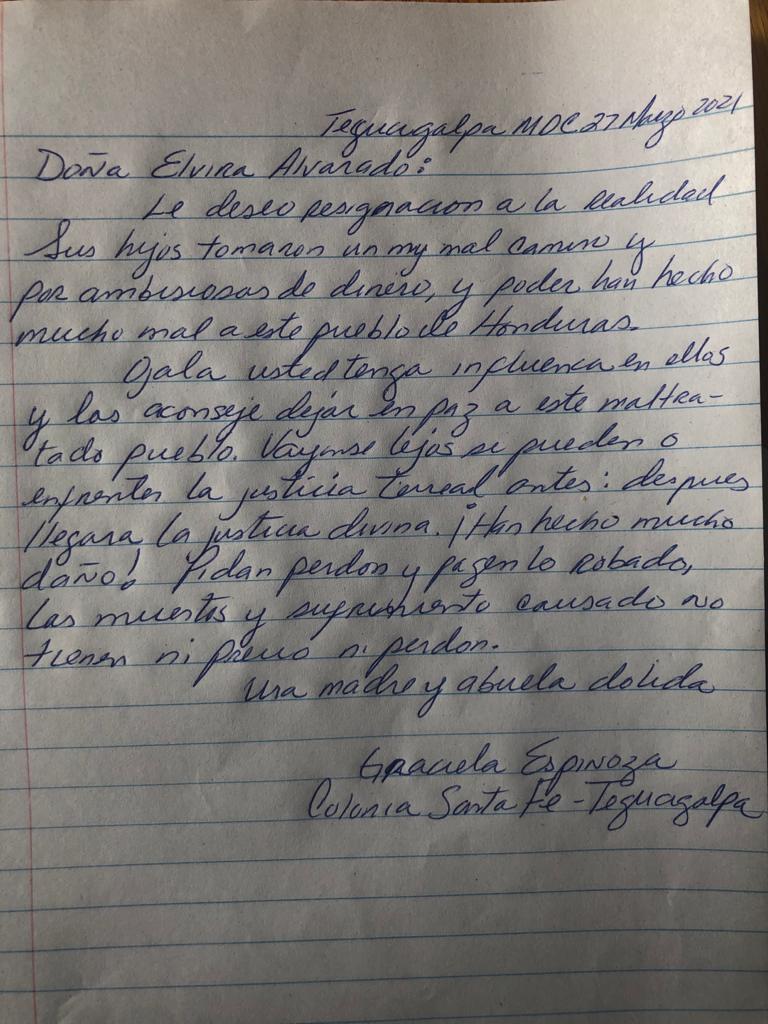 Teguagalpa MDC 27 Marzo 2021
Doña Elvira Alvarado:
Le deseo resignacion a la realidad
Sus hijos tomaron un my mal camino y
por ambisiosas de dinero, y poder han hecho
mucho mal a este pueblo de Honduras.
Ojala usted tenga influenca en ellos
y los aconseje dejar en paz a este maltra-
tado pueblo. Vayanse lejos si pueden o
enfrenten la justicia terreal antes: despues
llegara la justicia divina. ¡Han hecho mucho
daño! Pidan perdon y pagen lo robado,
Las muertes y sufrimiento causado no
tienen ni precio ni perdon.
Una madre y abuela dolida
Graciela Espinoza
Colonia Santa Fe - Teguagalpa